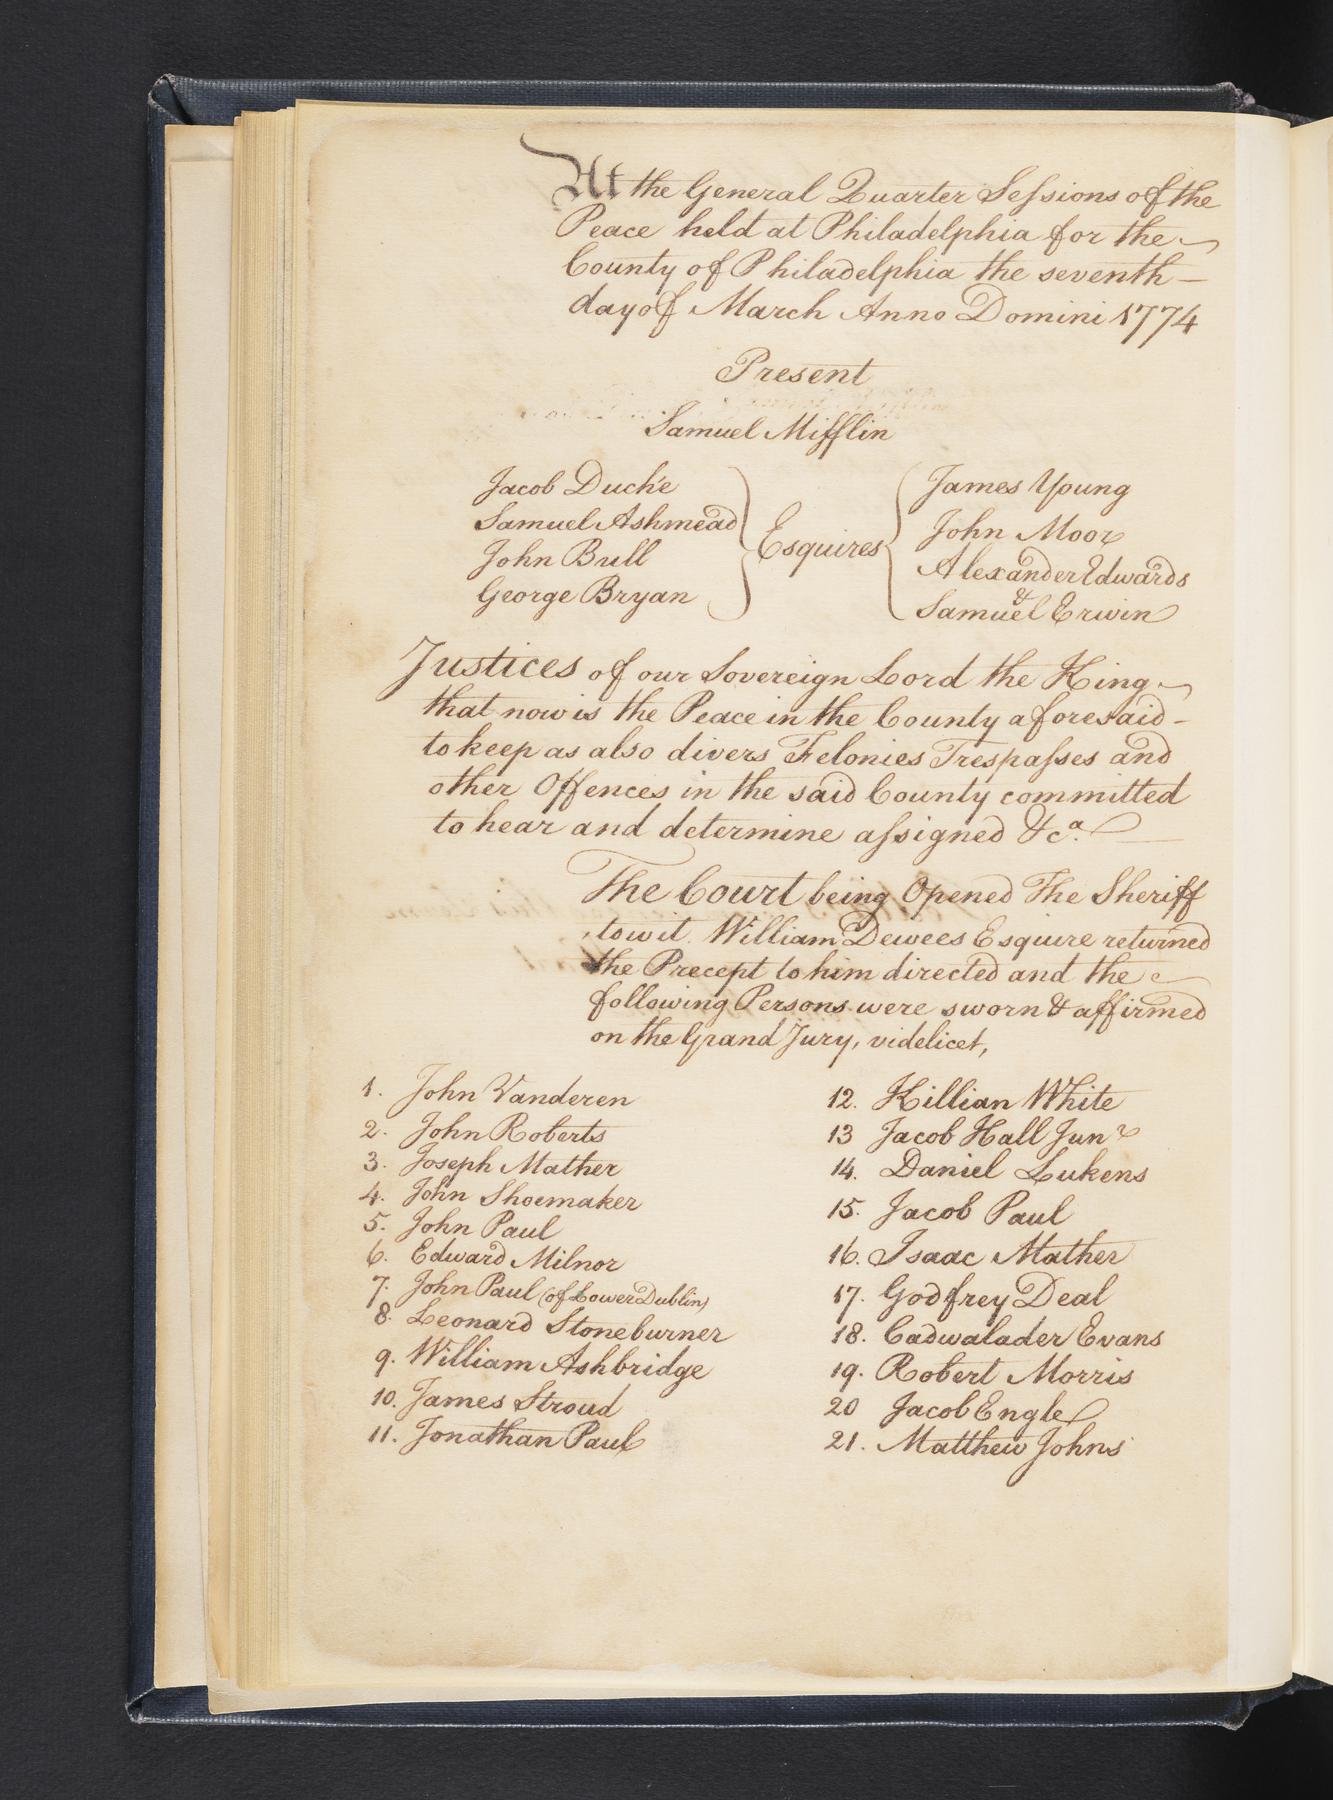 At the General Quarter Sessions of the
Peace held at Philadelphia for the
County of Philadelphia the seventh —
day of March Anno Domini 1774
Present
Samuel Mifflin
Jacob Duché
Samuel Ashmead
John Bull
George Bryan
Esquires
James Young
John Moor
Alexander Edwards
&
Samuel Erwin
Justices of our Sovereign Lord the King
that now is the Peace in the County aforesaid –
to keep as also divers Felonies Trespasses and
other Offences in the said County committed
to hear and determine assigned &ca.
The Court being Opened The Sheriff
towit William Dewees Esquire returned
the Precept to him directed and the
following Persons were sworn & affirmed
on the Grand Jury, videlicet,
1. John Vanderen
2. John Roberts
3. Joseph Mather
4. John Shoemaker
5. John Paul
6. Edward Milnor
7. John Paul (of Lower Dublin)
8. Leonard Stoneburner
9. William Ashbridge
10. James Stroud
11. Jonathan Paul
12. Killian White
13 Jacob Hall Junr
14. Daniel Lukens
15. Jacob Paul
16. Isaac Mather
17. Godfrey Deal
18. Cadwalader Evans
19. Robert Morris
20 Jacob Engle
21. Matthew Johns